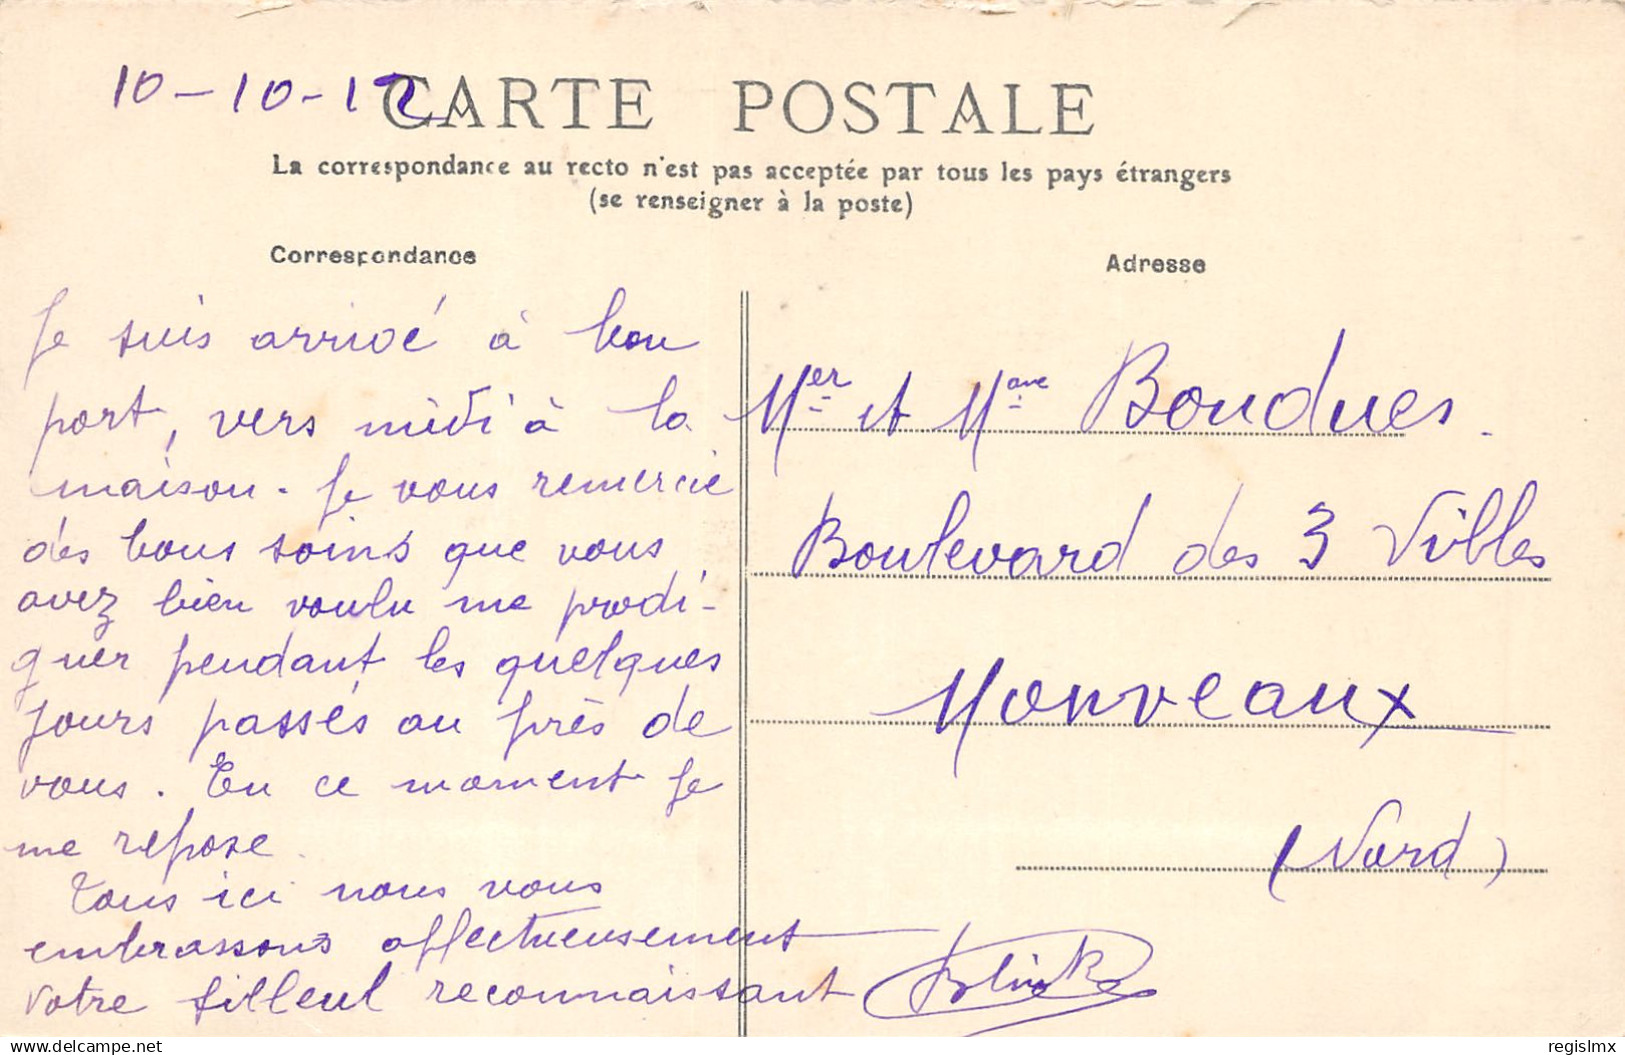 10-10-12
CARTE POSTALE
La correspondance au recto n'est pas acceptée par tous les pays étrangers
(se renseigner à la poste)
Correspondance
Je suis arrivé à bon
port, vers midi à la
maison. Je vous remercie
des bons soins que vous
avez bien voulu me prodi-
guer pendant les quelques
jours passés au près de
vous. En ce moment je
me repose.
Tous ici nous vous
embrassons affectueusement
Votre filleul reconnaissant
Adresse
Mer et Mme Bondues.
Boulevard des 3 Villes
Monveaux
(Nord)
delcampe.net
regislmx